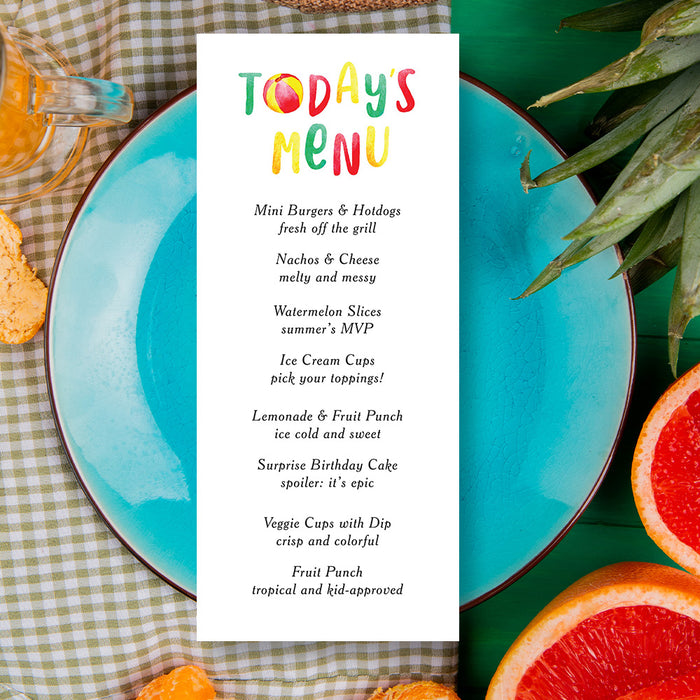 TODAY'S
MENU
Mini Burgers & Hotdogs
fresh off the grill
Nachos & Cheese
melty and messy
Watermelon Slices
summer's MVP
Ice Cream Cups
pick your toppings!
Lemonade & Fruit Punch
ice cold and sweet
Surprise Birthday Cake
spoiler: it's epic
Veggie Cups with Dip
crisp and colorful
Fruit Punch
tropical and kid-approved